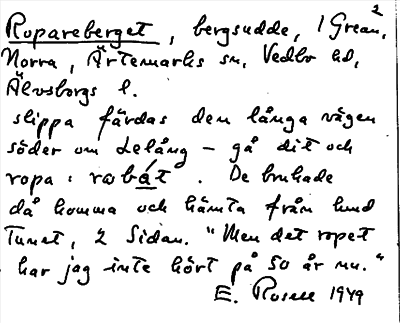 Ropareberget, bergsudde, 1 Grean,²
Norra, Ärtemarks sn, Vedbo hd,
Älvsborgs l.
slippa färdas den långa vägen
söder om Lelång – gå dit och
ropa: ro båt. De brukade
då komma och hämta från hmd
Tunet, 2 Sidan. "Men det ropet
har jag inte hört på 50 år nu."
E. Rosell 1949